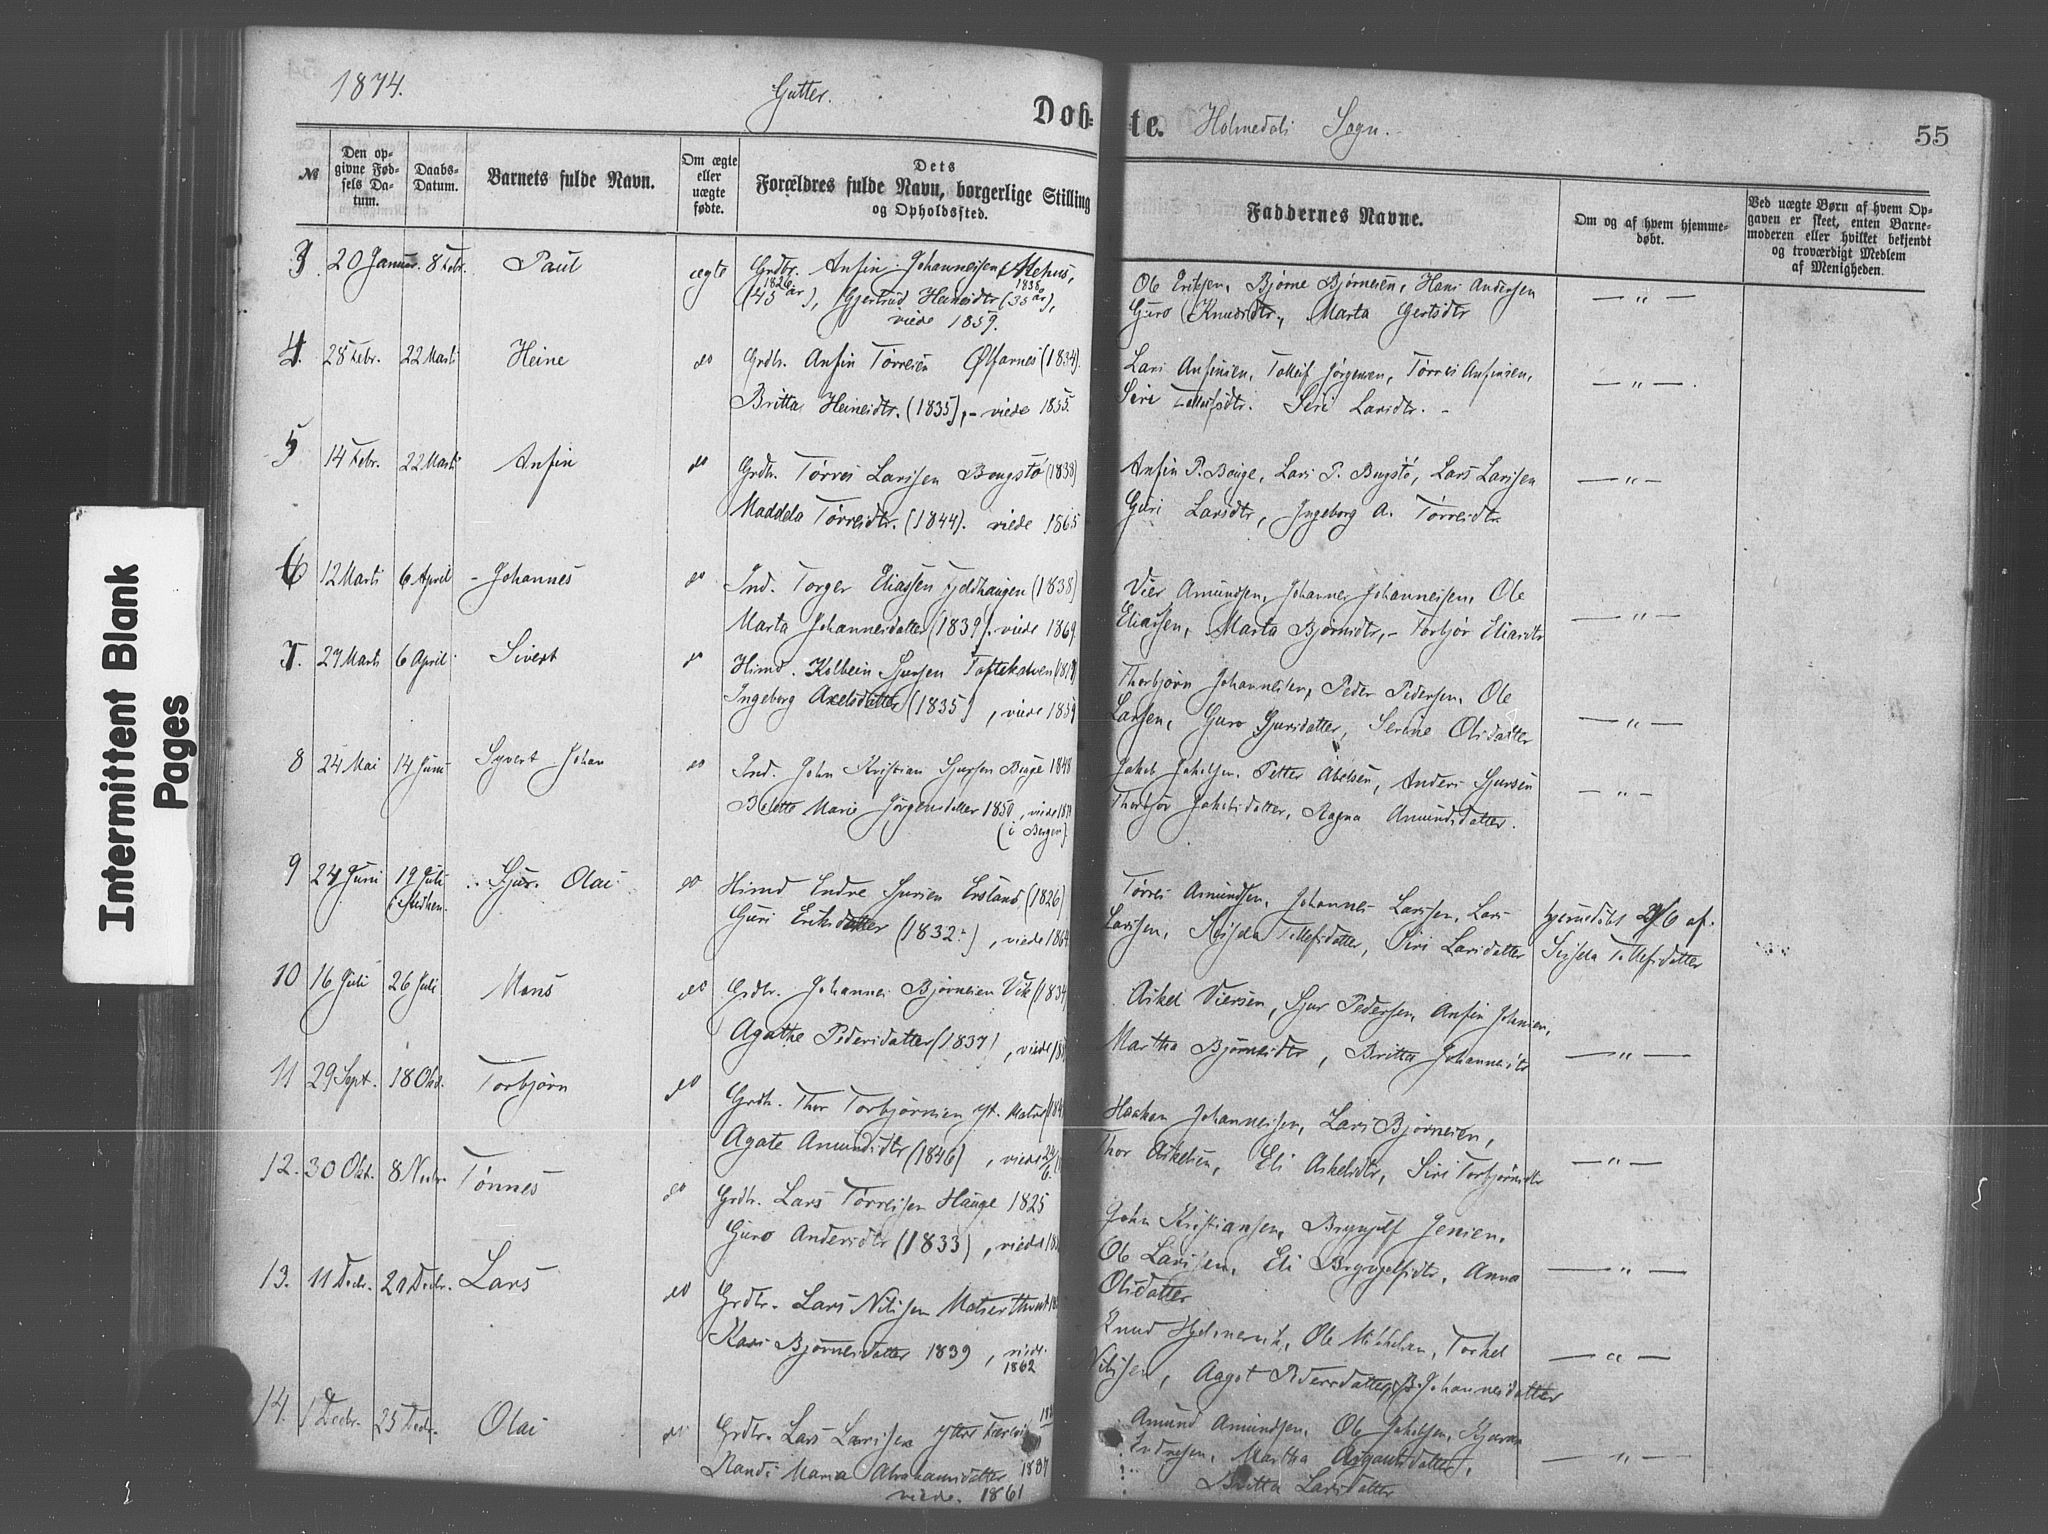 1874.
Gutter.
Døb-
te.
Holmedals Sogn.
55
№
Den op-
givne Fød-
sels Da-
tum.
Daabs-
Datum.
Barnets fulde Navn.
Om ægte
eller
uægte
fødte.
Dets
Forældres fulde Navn, borgerlige Stilling
og Opholdssted.
Faddernes Navne.
Om og af hvem hjemme-
døbt.
Ved uægte Børn af hvem Op-
gaven er skeet, enten Barne-
moderen eller hvilket bekjendt
og troværdigt Medlem
af Menigheden.
3. 20 Januar. 8 Febr. Paul ægte Grdbr. Anfin Johannessen Mehus,
1826 1838
(45 år), Gjertrud Heinesdtr (35 år),
viede 1859.
Ole Eriksen, Bjørne Bjørnesen, Hans Andersen
Guro Knudsdtr., Marta Gertsdtr
— " —
4. 28 Febr. 22 Marts Heine do Grdbr. Anfin Tørresen Ølfarnes (1834).
Britta Heinesdtr. (1835), - viede 1855.
Lars Anfinsen, Tolleif Jørgensen, Tørres Anfinsen,
Siri Tolleifsdtr. Siri Larsdtr. -
— " — .
5 14 Febr. 22 Marts Anfin do Grdbr. Tørres Larssen Bougstø (1838)
Maddela Tørresdtr. (1844). viede 1865
Anfin P. Bouge, Lars P. Bugstø, Lars Larssen
Guri Larsdtr, Ingeborg A. Tørresdtr.
— " —
6 12 Marts 6 April - Johannes do Ind. Torger Eliassen Fjeldhaugen (1838)
Marta Johannesdatter (1839). viede 1869
Vier Amundsen, Johannes Johannessen, Ole
Eliassen, Marta Bjørnsdtr, - Torbjør Eliasdtr
— " —
7. 27 Marts 6 April Sivert do Himd. Kolbein Sjursen Toftekalven
Ingeborg Axelsdatter (1835), viede 1859
Thorbjørn Johannesen, Peder Pedersen, Ole
Larsen, Guro Sjursdatter, Serine Olsdatter
— " —
8 24 Mai 14 Juni Syvert Johan do Ind. John Kristian Sjursen Bouge 1848
Marie Jørgensdatter 1850, viede
(i Bergen)
Jakob Jakobsen, Petter Abelsen, Anders Sjursen
Thorbjør Jakobsdatter, Ragna Amundsdatter.
— " —
9 24 Juni 19 Juli Sjur Olai do Himd Endre Sjursen Ersland (1826)
Guri Eriksdatter (1832), viede 1864
Tørres Amundsen, Johannes Larssen, Lars
Larssen, Seisela Tollefsdatter, Siri Larsdatter
hjemmedøbt 29/6 af
Seisela Tollefsdatter
10 16 Juli 26 Juli Mons do Grdbr. Johannes Bjørnesen Vik (1834
Agathe Pedersdatter (1837), viede
Askel Viersen, Sjur Pedersen, Anfin Johnsen,
Martha Bjørnesdtr, Britta Johannesdtr
— " —
11 29 Sept. 18 Okt. Torbjørn do Grdb. Thor Torbjørnsen yt. Matre
Agate Amundsdtr (1846), viede
Haakon Johannessen, Lars Bjørnesen,
Thor Askelsen, Eli Askelsdtr, Siri Torbjørnsdtr
— " —
12. 30 Okt. 8 Novbr. Tønnes do Grdbr. Lars Tørresen Hauge 1825
Guro Andersdtr (1833), viede
John Kristiansen, Brynjulf Jensen,
Ole Larssen, Eli Brynjulfsdtr, Anna
Olsdatter
— " —
13. 11 Decbr. 20 Decbr. Lars do Grdbr. Lars Nilssen Matrer
Kari Bjørnesdatter 1839, viede.
1862
Knud Hjelmervik, Ole Mikkelsen, Torkel
Nilssen, Aagot Pedersdatter, B. Johannesdatter
— " —
14. 1 Decbr. 25 Decbr. Olai do Grdbr. Lars Larssen ytre
Randi Maria Abrahamsdatter 1837
viede. 1861
Amund Amundsen, Ole Jakobsen,
Endresen, Martha
Britta Larsdatter
— " —
Intermittent Blank
Pages